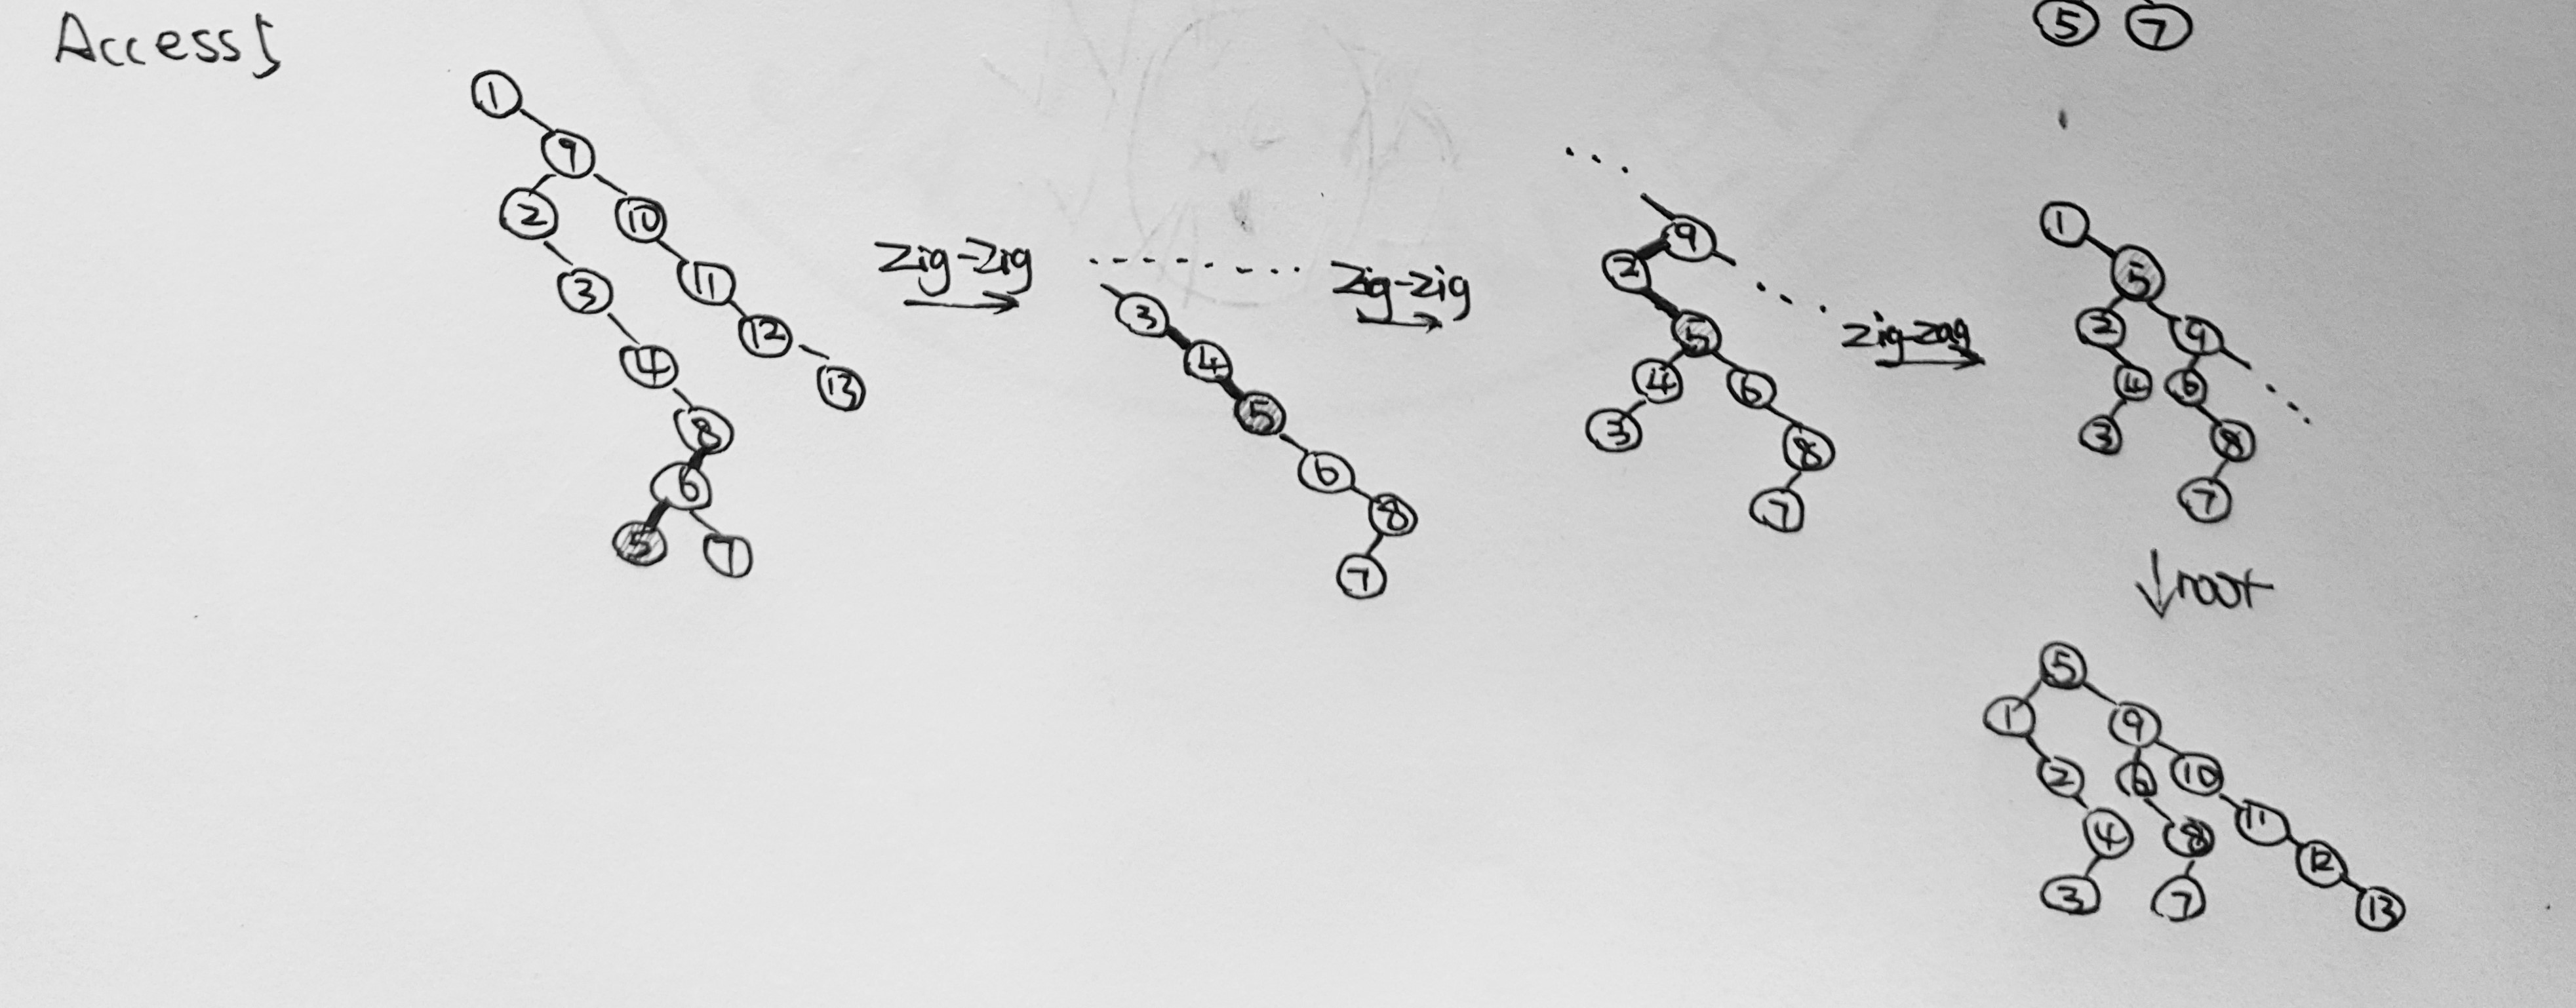 Access 5
5 7
1
9
2 10
3 11
4 12
8 13
6
5 7
Zig-Zig
3
4
5
6
8
7
Zig-Zig
9
2
5
4 6
3 8
7
Zig-zag
1
5
2 9
4 6
3 8
7
root
5
1 9
2 6 10
4 8 11
3 7 12
13